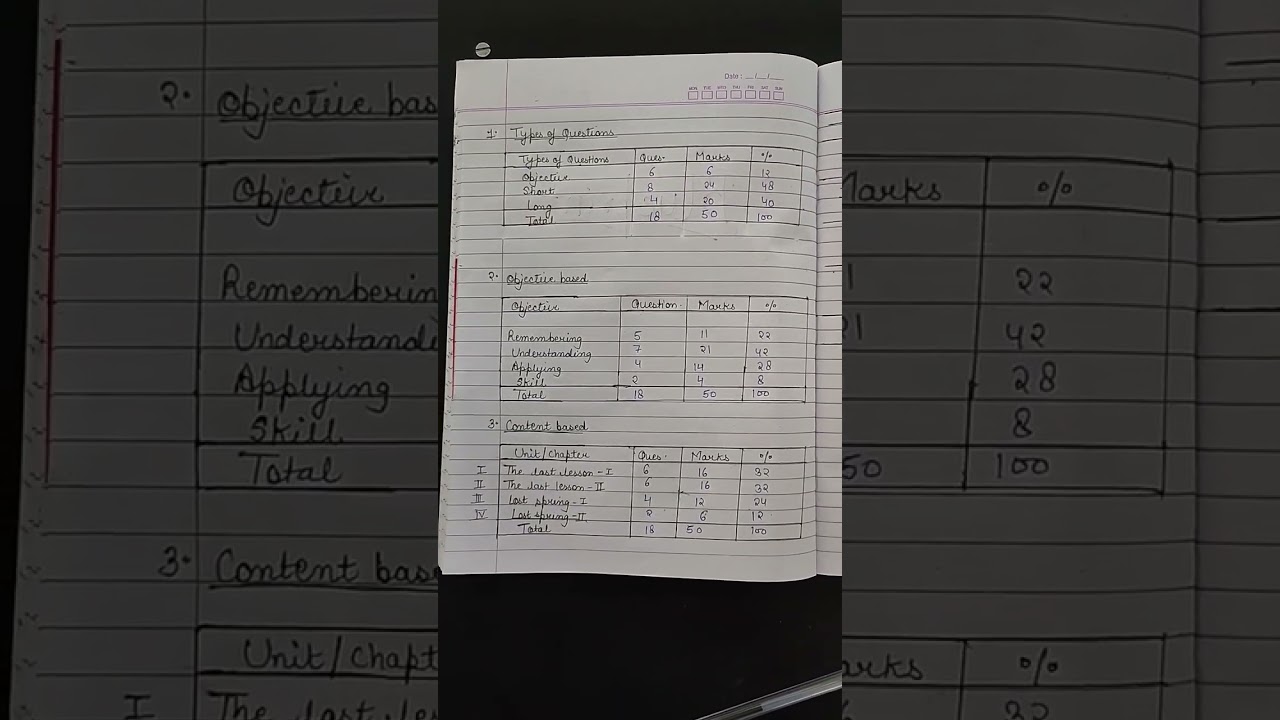 Date : __/__/__
MON TUE WED THU FRI SAT SUN
1. Types of Questions
Types of Questions Ques. Marks %
Objective 6 6 12
Short 8 24 48
Long 4 20 40
Total 18 50 100
2. Objective based
Objective Question. Marks %
Remembering 5 11 22
Understanding 7 21 42
Applying 4 14 28
Skill 2 4 8
Total 18 50 100
3. Content based
Unit/Chapter Ques. Marks %
I The last lesson-I 6 16 32
II The last lesson-II 6 16 32
III Lost spring-I 4 12 24
IV Lost spring-II 2 6 12
Total 18 50 100